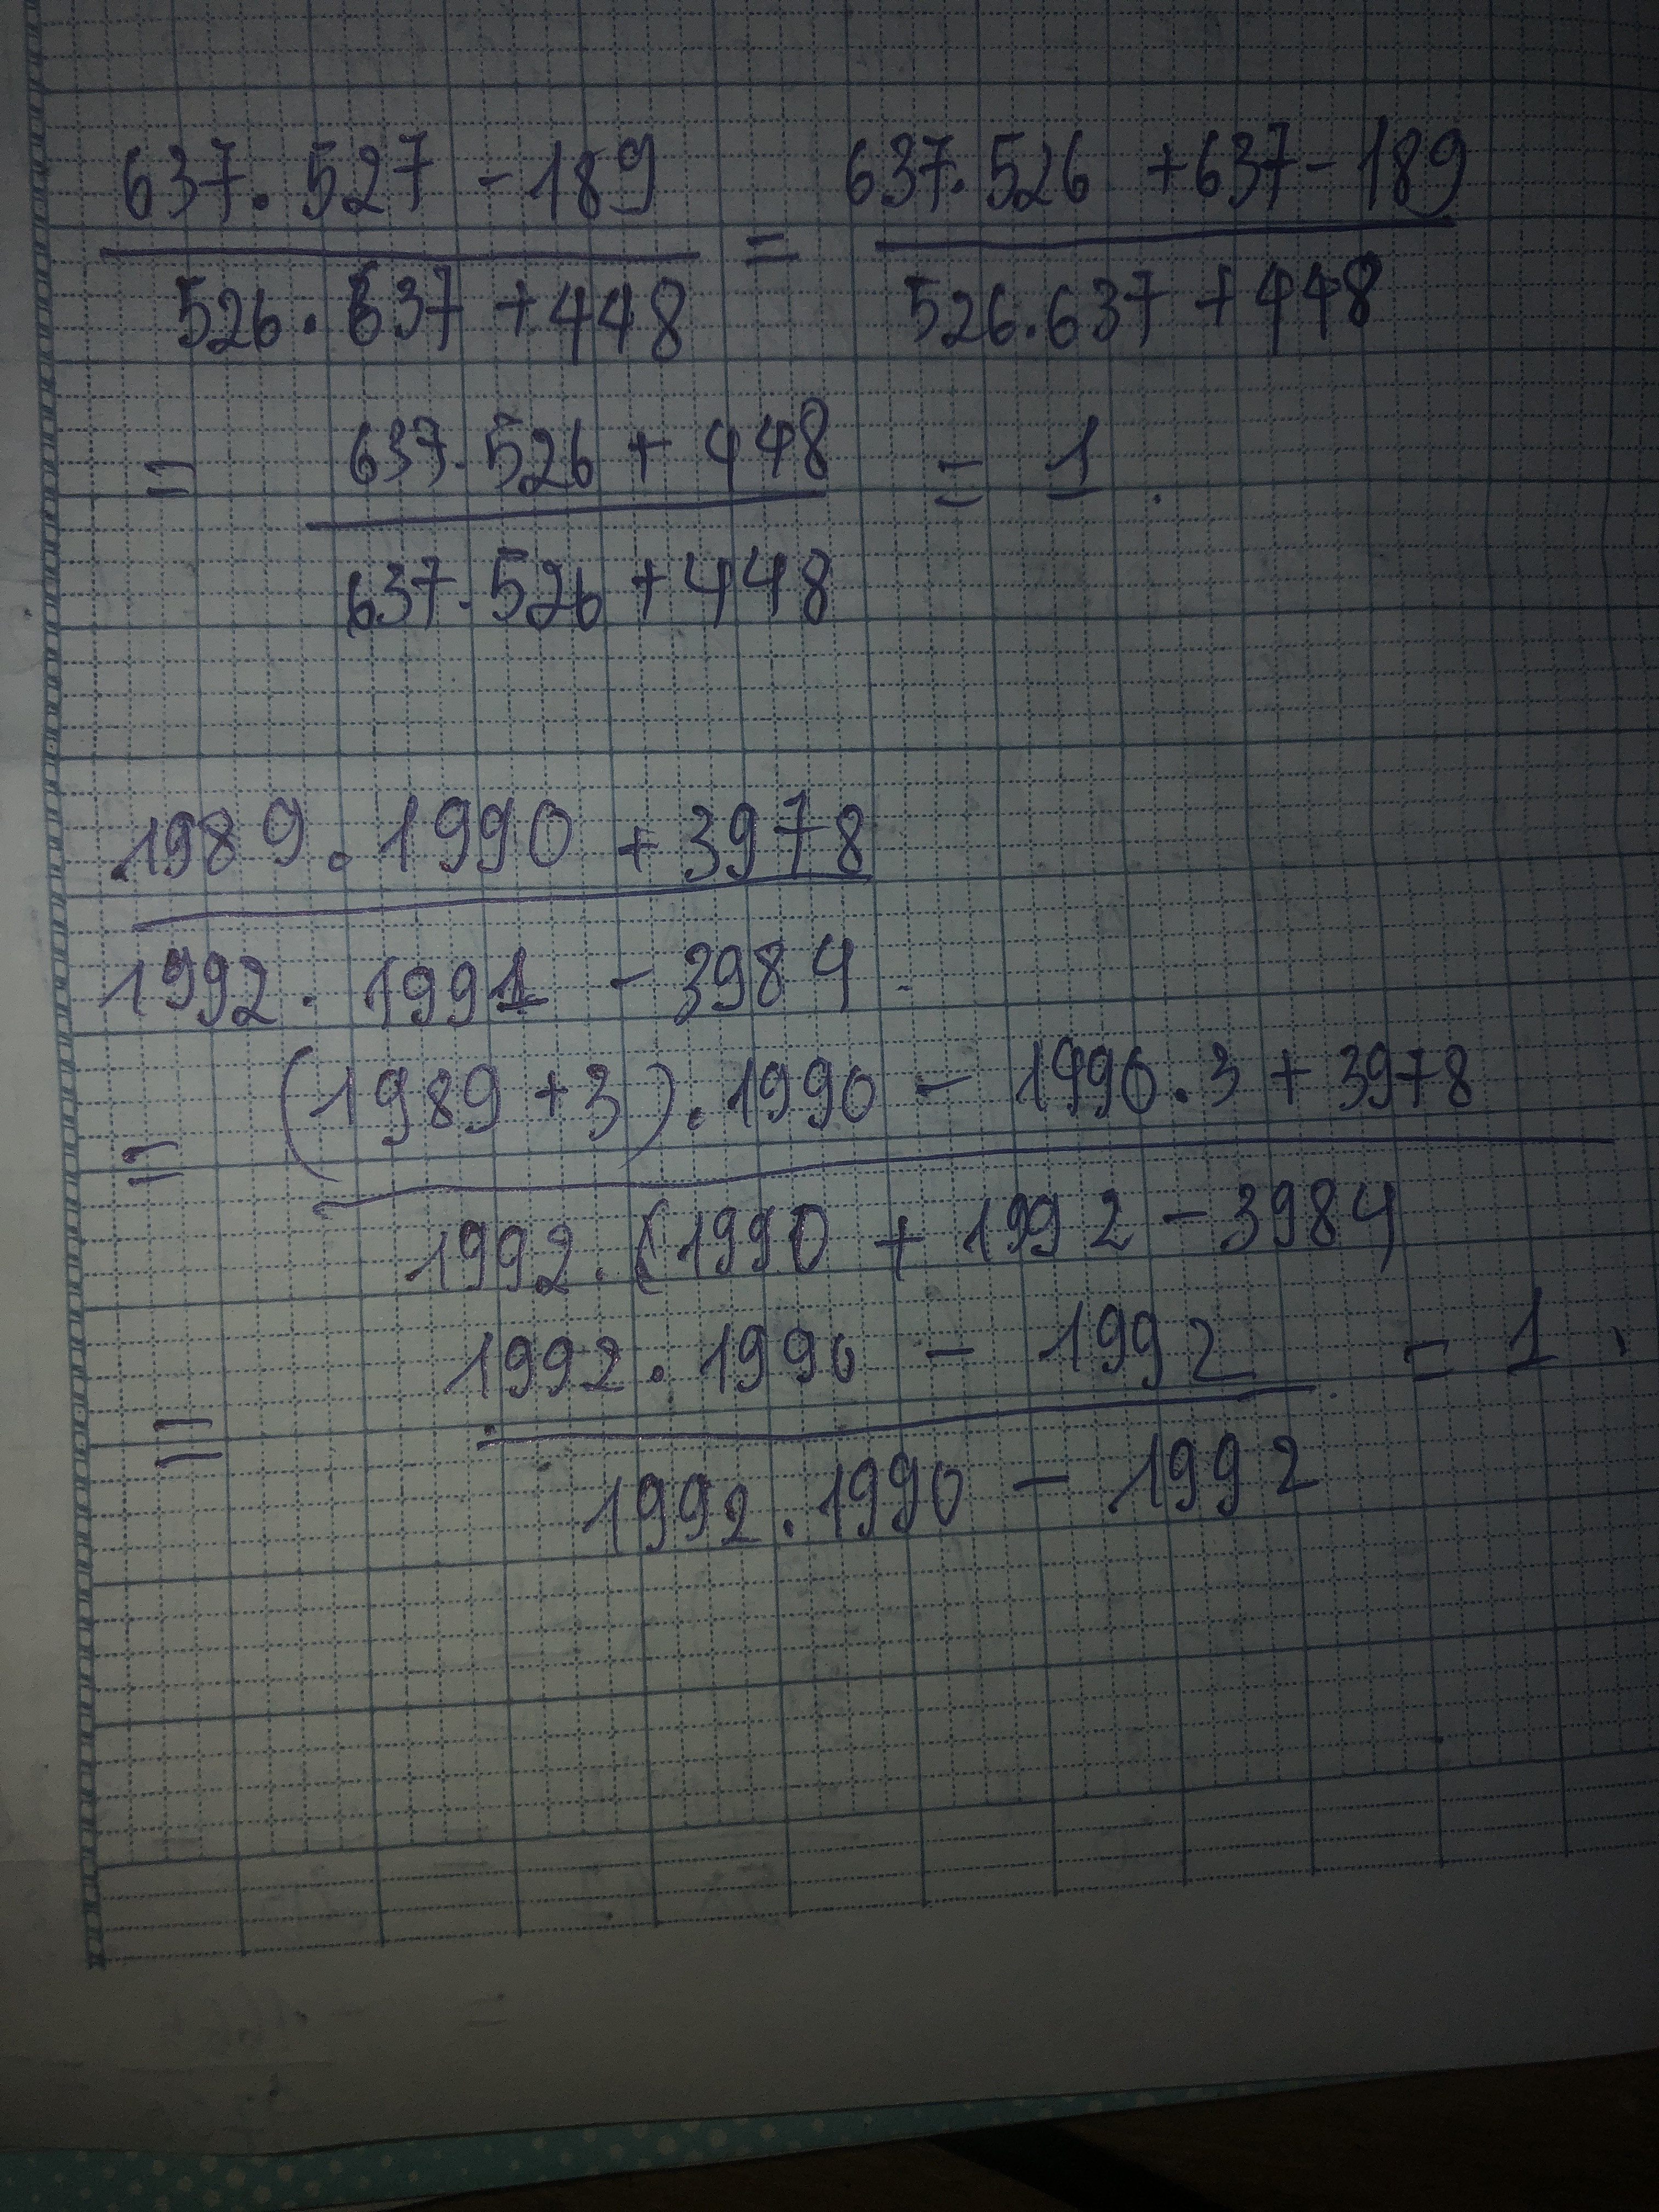 637.527 - 189 = 637.526 + 637 - 189
526.637 + 448 526.637 + 448
= 637.526 + 448 = 1.
637.526 + 448
1989.1990 + 3978
1992.1991 - 3984
= (1989 + 3).1990 - 1990.3 + 3978
1992.(1990 + 1992 - 3984
= 1992.1990 - 1992 = 1.
1992.1990 - 1992